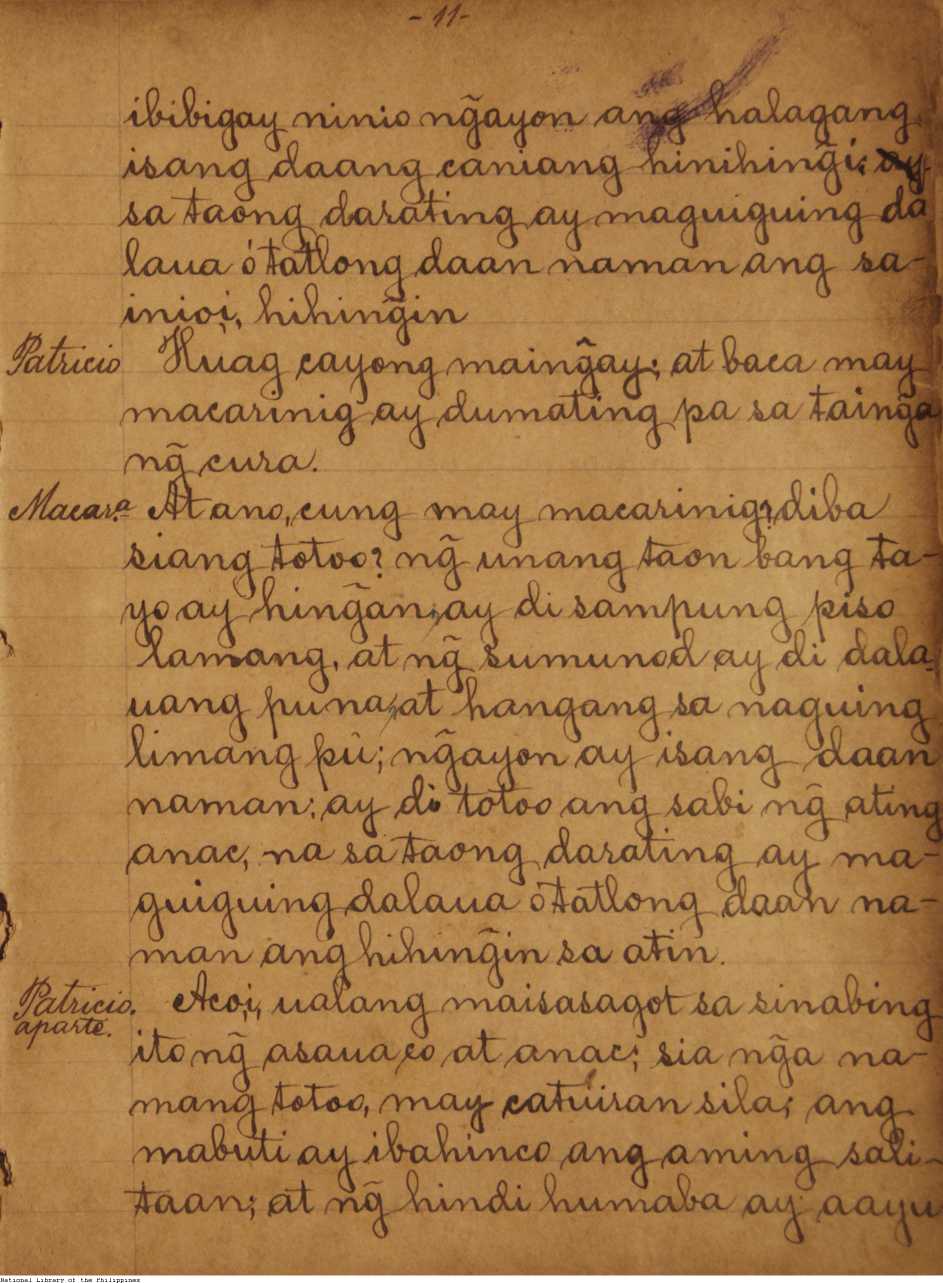 - 11 -
ibibigay ninio ng̃ayon ang halagang
isang daang caniang hinihing̃i; ay
sa taong darating ay maguiguing da
laua ó tatlong daan naman ang sa-
inioi, hihing̃in
Patricio Huag cayong maing̃ay; at baca may
macarinig ay dumating pa sa taing̃a
ng̃ cura.
Macar.ª At ano, cung may macarinig? diba
siang totoo? ng̃ unang taon bang ta-
yo ay hing̃an, ay di sampung piso
lamang, at ng̃ sumunod ay di dala-
uang puna, at hangang sa naguing
limang pû; ng̃ayon ay isang daan
naman: ay di totoo ang sabi ng̃ ating
anac, na sa taong darating ay ma-
guiguing dalaua ó tatlong daan na-
man ang hihing̃in sa atin.
Patricio. Acoi, ualang maisasagot sa sinabing
aparte. ito ng̃ asaua co at anac; sia ng̃a na-
mang totoo, may catuiran sila; ang
mabuti ay ibahinco ang aming sali-
taan; at ng̃ hindi humaba ay aayu
National Library of the Philippines